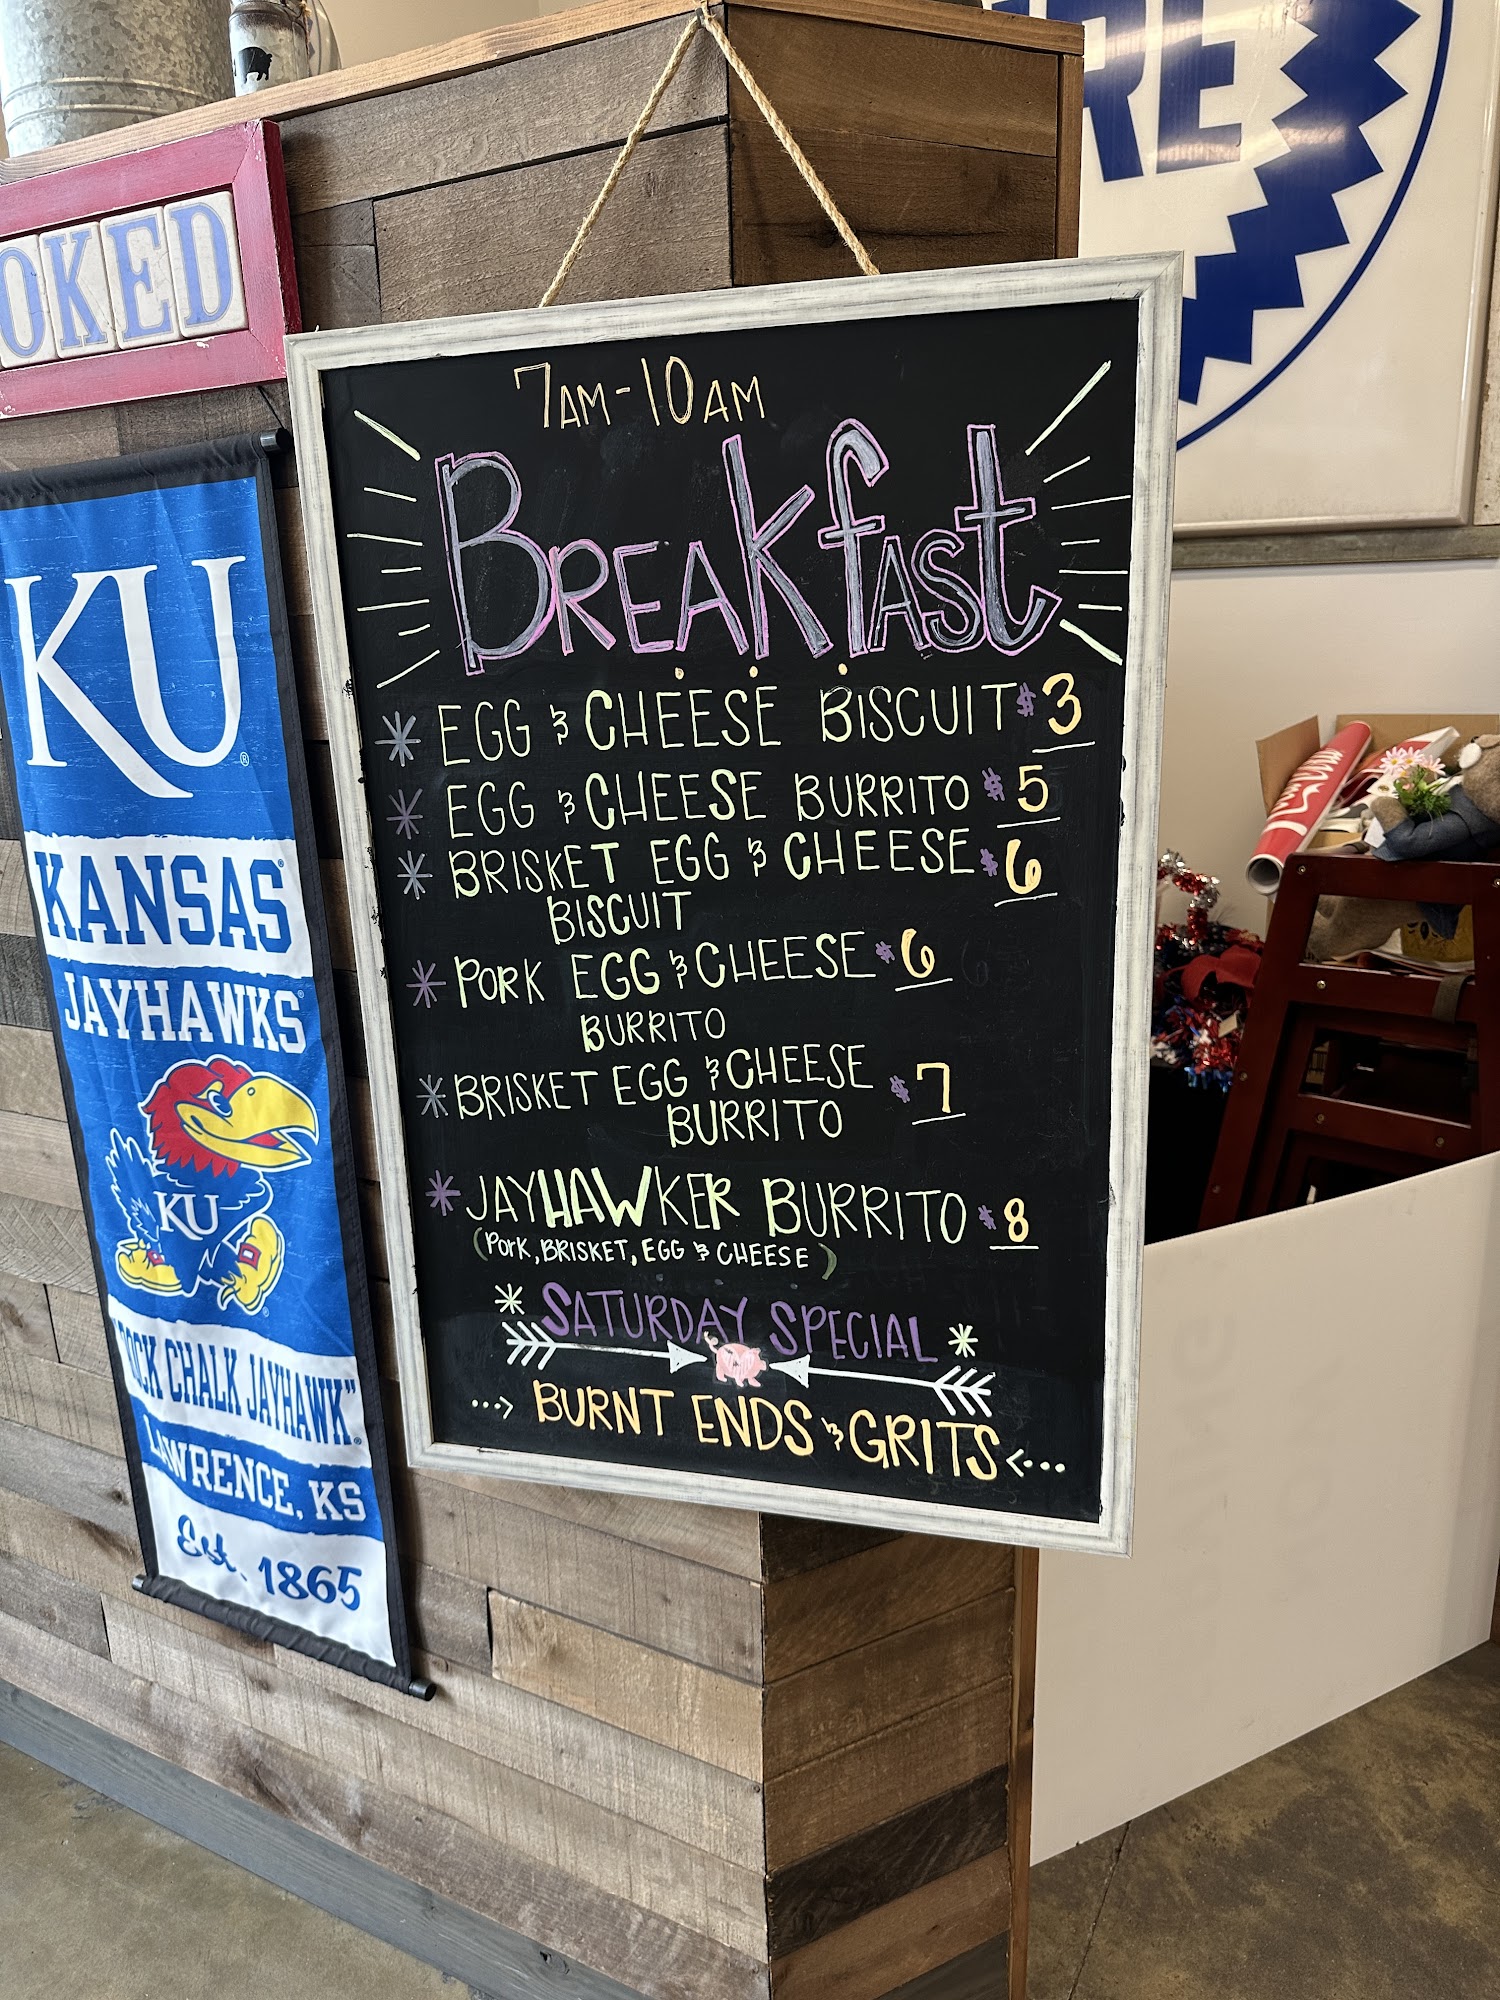 OKED
RE
KU
KANSAS
JAYHAWKS
KU
ROCK CHALK JAYHAWK"
LAWRENCE, KS
Est. 1865
7AM-10AM
BREAKFAST
* EGG & CHEESE BISCUIT $3
* EGG & CHEESE BURRITO $5
* BRISKET EGG & CHEESE $6
BISCUIT
* PORK EGG & CHEESE $6
BURRITO
* BRISKET EGG & CHEESE $7
BURRITO
* JAYHAWKER BURRITO $8
(PORK, BRISKET, EGG & CHEESE)
* SATURDAY SPECIAL *
...> BURNT ENDS & GRITS <...